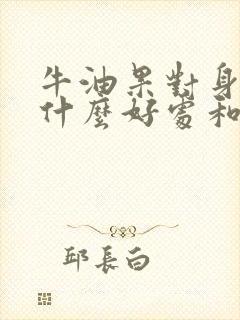 牛油果對身
什麼好處和
邱長白